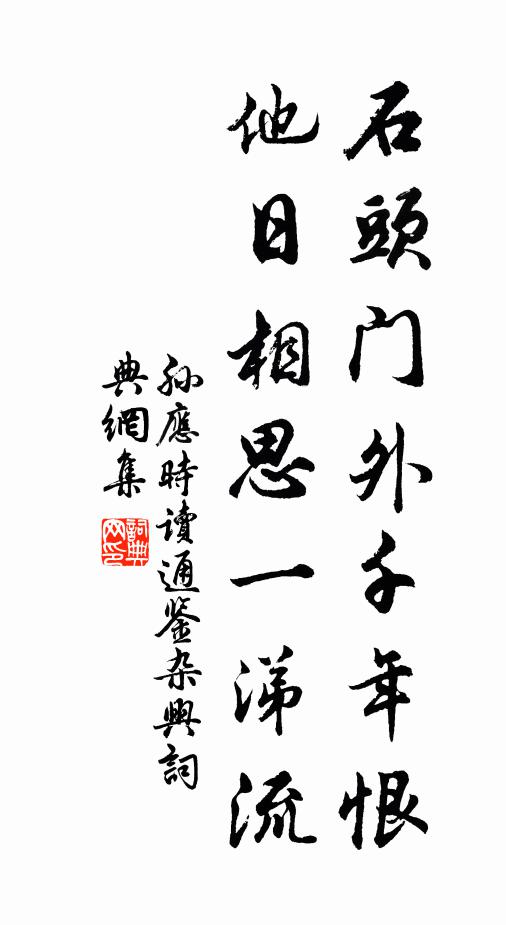 石頭門外千年恨
他日相思一涕流
孫應時讀通鉴杂興詞
典網集
詞典
网印